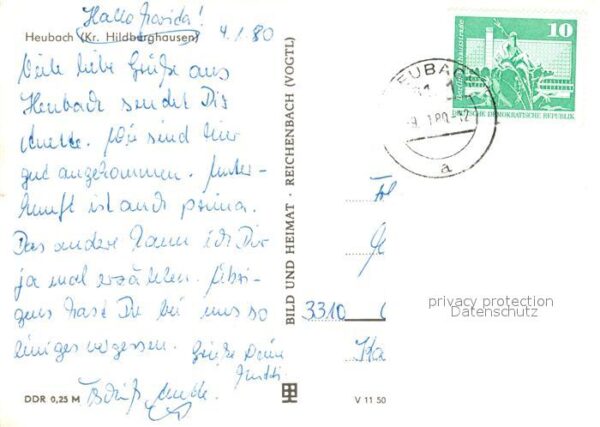 Hallo Frovida!
Heubach (Kr. Hildburghausen) 4.1.80
Viele liebe Grüße aus
Heubach sendet Dir
Anette. Wir sind hier
gut angekommen. Unter-
kunft ist auch prima.
Das andere kann ich Dir
ja mal erzählen. Übri-
gens hast Du bei uns so
einiges vergessen. Grüße Deine
DDR 0,25 M
BILD UND HEIMAT · REICHENBACH (VOGTL)
V 11 50
10
DEUTSCHE DEMOKRATISCHE REPUBLIK
HEUBACH
a
3310
privacy protection
Datenschutz